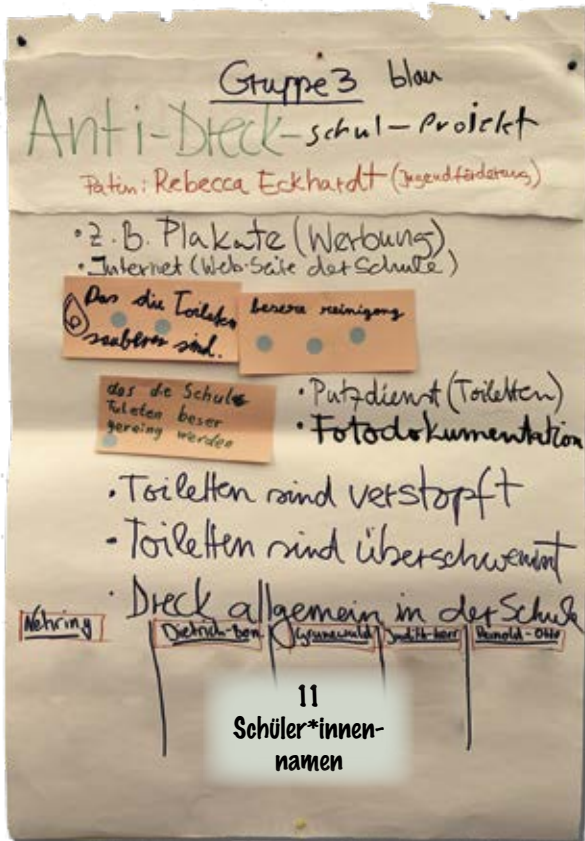 Gruppe 3 blau
Anti-Dreck-schul-Projekt
Patin: Rebecca Eckhardt (Jugendförderung)
• z.B. Plakate (Werbung)
• Internet (Web-Seite der Schule)
Das die Toileten
sauberer sind.
besere reinigong
das die Schule
Tuleten beser
gereing werden
• Putzdienst (Toiletten)
• Fotodokumentation
• Toiletten sind verstopft
• Toiletten sind überschwemmt
• Dreck allgemein in der Schule
Nehring
Dietrich-Bon.
Grunewald
Judith-Kerr
Reinold-Otto
11
Schüler*innen-
namen